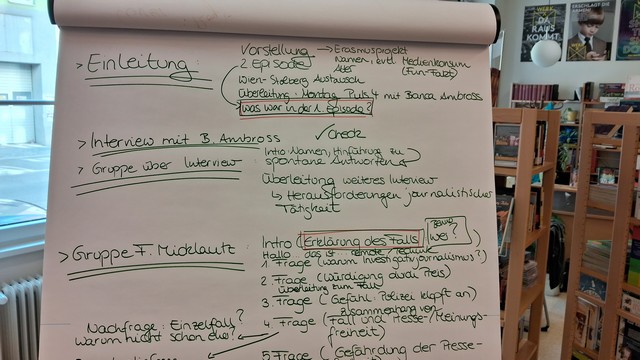 > Einleitung
Vorstellung → Erasmusprojekt
Namen, evtl. Medienkonsum
Alter (Fun-Fact)
2 Episode
Wien-Stolberg Austausch
Überleitung: Montag Puls 4 mit Bianca Ambross
was war in der 1. Episode?
> Interview mit B. Ambross
✓ Check
Intro: Namen, Hinführung zu
spontane Antworten
> Gruppe über Interview
Überleitung weiteres Interview
↳ Herausforderungen journalistischer
Tätigkeit
> Gruppe F. Micklautz
Intro (Erklärung des Falls
wer?)
Hallo das ist
1 Frage (warum Investigativjournalismus?)
2. Frage (Würdigung durch Preis)
Überleitung zum Fall
3. Frage (Gefahr: Polizei klopft an)
Zusammenhang von
4. Frage (Fall und Presse-/Meinungs-
freiheit)
Nachfrage: Einzelfall?
warum nicht schon eher?
5. Frage (Gefährdung der Presse-
DA
RAUS
KOMMT